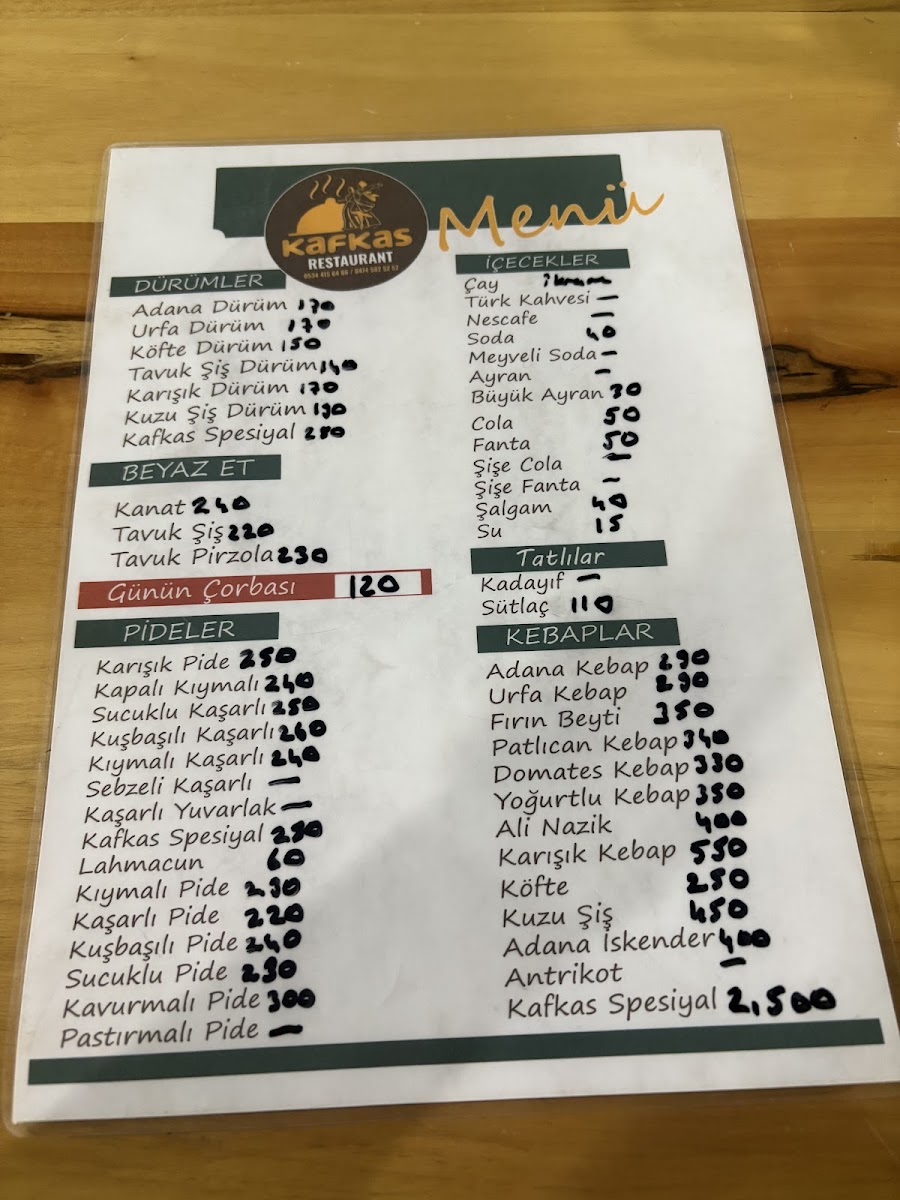 KAFKAS
RESTAURANT
Menü
DÜRÜMLER
Adana Dürüm 170
Urfa Dürüm 170
Köfte Dürüm 150
Tavuk Şiş Dürüm 140
Karışık Dürüm 170
Kuzu Şiş Dürüm 190
Kafkas Spesiyal
BEYAZ ET
Kanat 240
Tavuk Şiş 220
Tavuk Pirzola 230
Günün Çorbası 120
PİDELER
Karışık Pide 250
Kapalı Kıymalı 240
Sucuklu Kaşarlı 250
Kuşbaşılı Kaşarlı 260
Kıymalı Kaşarlı 240
Sebzeli Kaşarlı —
Kaşarlı Yuvarlak —
Kafkas Spesiyal
Lahmacun 60
Kıymalı Pide
Kaşarlı Pide 220
Kuşbaşılı Pide 240
Sucuklu Pide 230
Kavurmalı Pide 300
Pastırmalı Pide —
İÇECEKLER
Çay ikram
Türk Kahvesi —
Nescafe —
Soda 40
Meyveli Soda —
Ayran —
Büyük Ayran 30
Cola 50
Fanta 50
Şişe Cola —
Şişe Fanta —
Şalgam 40
Su 15
Tatlılar
Kadayıf —
Sütlaç 110
KEBAPLAR
Adana Kebap 290
Urfa Kebap 290
Fırın Beyti 350
Patlıcan Kebap 340
Domates Kebap 330
Yoğurtlu Kebap 350
Ali Nazik 400
Karışık Kebap 550
Köfte 250
Kuzu Şiş 450
Adana İskender 400
Antrikot —
Kafkas Spesiyal 2,500